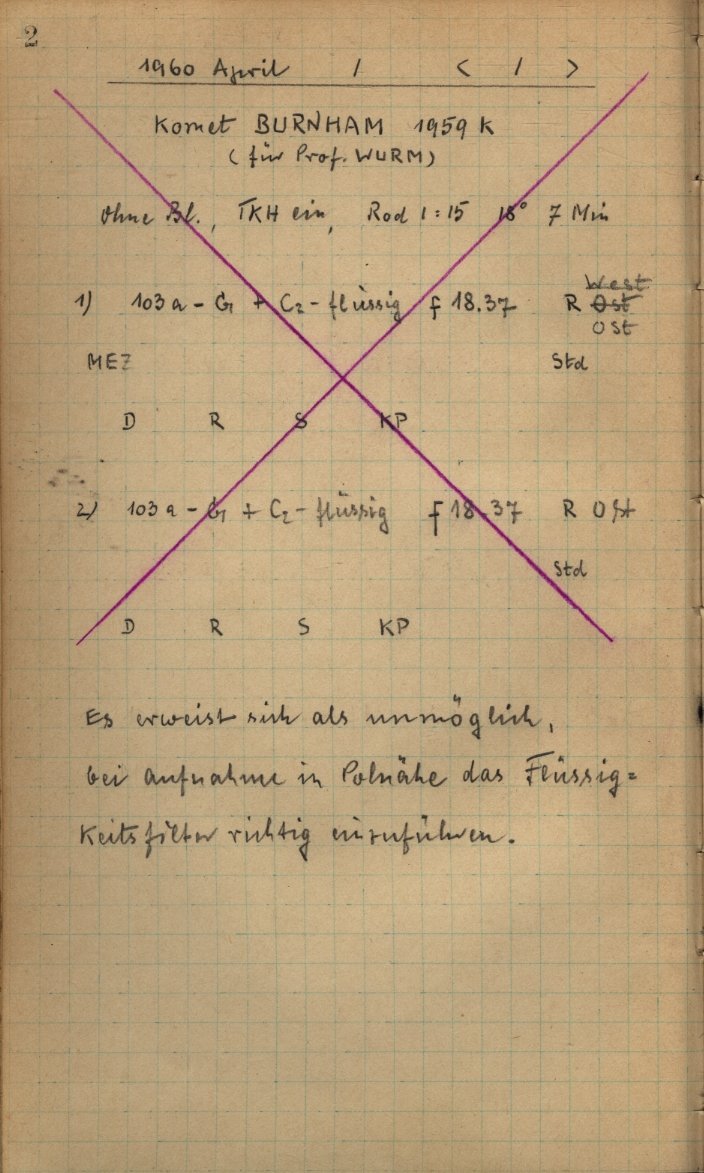 2
1960 April / < / >
Komet BURNHAM 1959 K
(für Prof. WURM)
Ohne Bl., TKH ein, Rod 1:15 18° 7 Min
West
1) 103 a - G1 + C2 - flüssig f 18.37 R Ost
Ost
MEZ Std
D R S KP
2) 103 a - G1 + C2 - flüssig f 18.37 R Ost
Std
D R S KP
Es erweist sich als unmöglich,
bei Aufnahme in Polnähe das Flüssig=
keitsfilter richtig einzuführen.